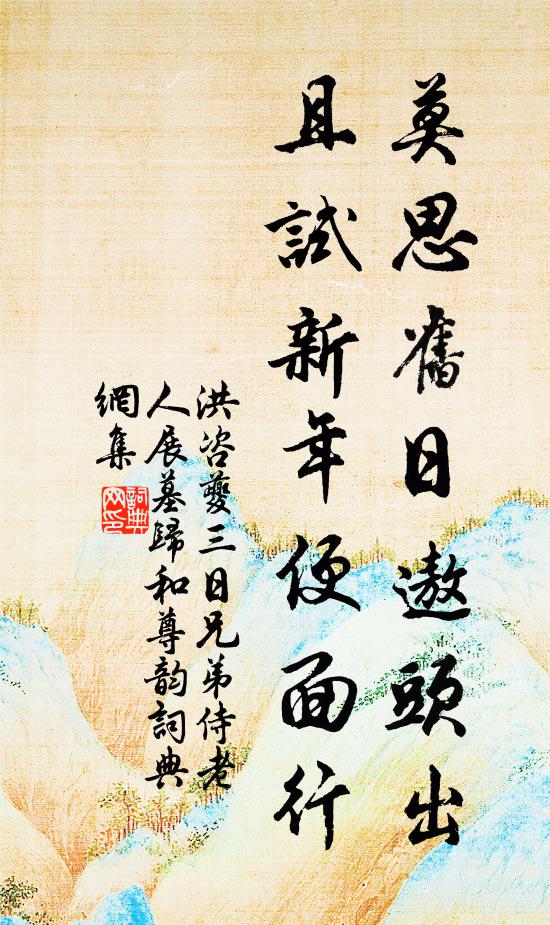 莫思舊日遨頭出
且試新年便面行
洪咨夔三日兄弟侍老
人展墓歸和尊韵詞典
網集
詞典
网印